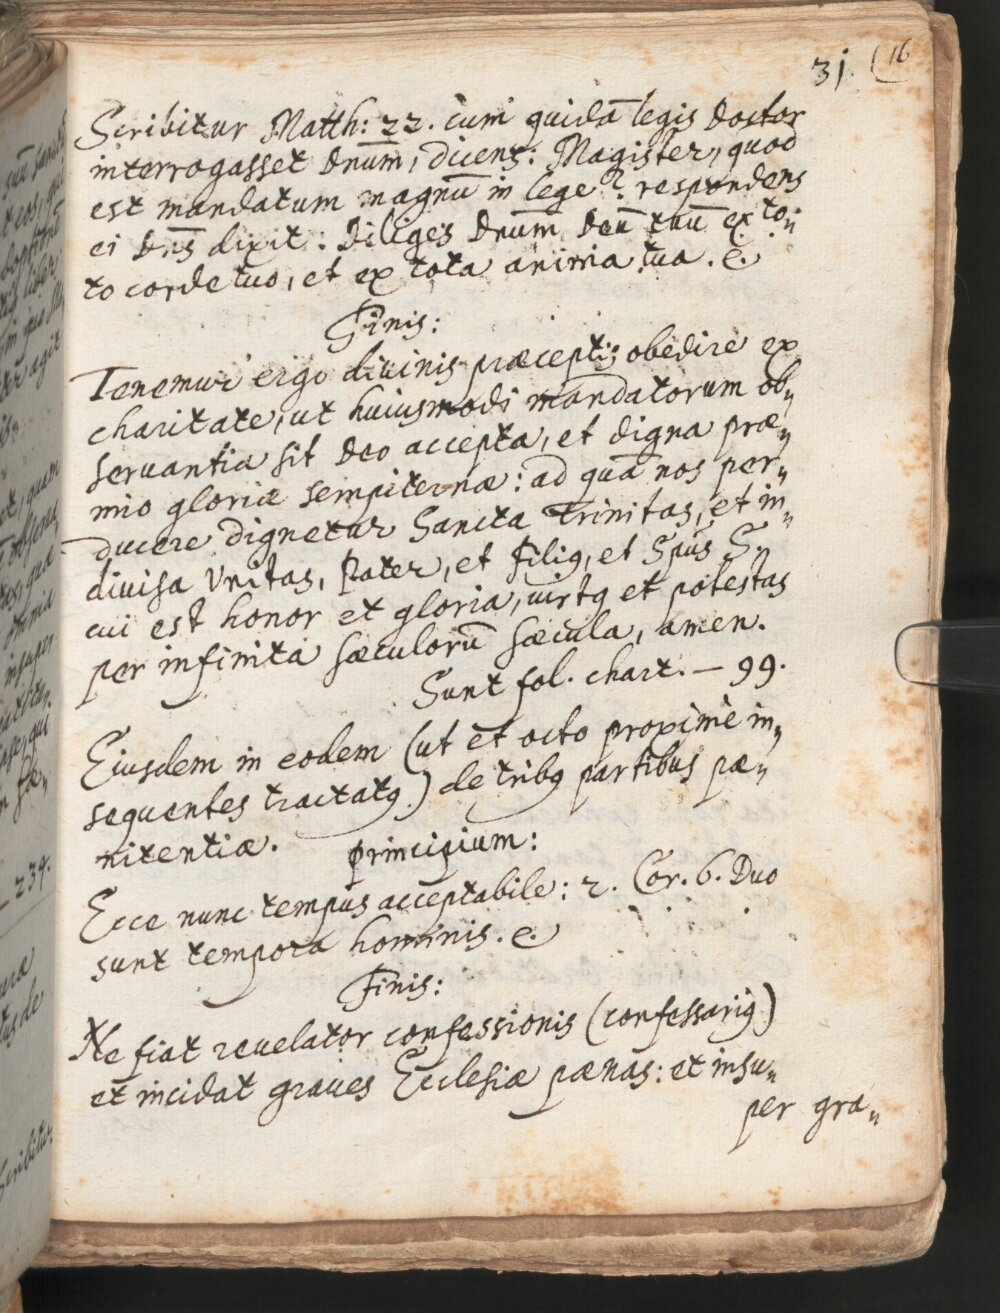 31. 16
Scribitur Matth: 22. cum quidā legis doctor
interrogasset Dnūm, dicens: Magister, quod
est mandatum magnū in lege? respondens
ei Dn̄s dixit: Diliges Dnūm Deū tuū ex to„
to corde tuo, et ex tota anima tua. &.
Finis:
Tenemur ergo divinis præceptis obedire ex
charitate, ut huiusmodi mandatorum ob„
servantia sit Deo accepta, et digna præ„
mio gloriæ sempiternæ: ad quā nos per„
ducere dignetur Sancta Trinitas, et in„
divisa Vnitas, Pater, et Filiꝯ, et Spūs S.
cui est honor et gloria, virtꝯ et potestas
per infinita sæculorū sæcula, amen.
Sunt fol. chart. — 99.
Eiusdem in eodem (ut et octo proximè in„
sequentes tractatꝯ) de tribꝯ partibus pæ„
nitentiæ.
Principium:
Ecce nunc tempus acceptabile: 2. Cor. 6. Duo
sunt tempora hominis. &.
Finis:
Ne fiat revelator confessionis (confessariꝯ)
et incidat graves Ecclesiæ pænas: et insu„
per gra„